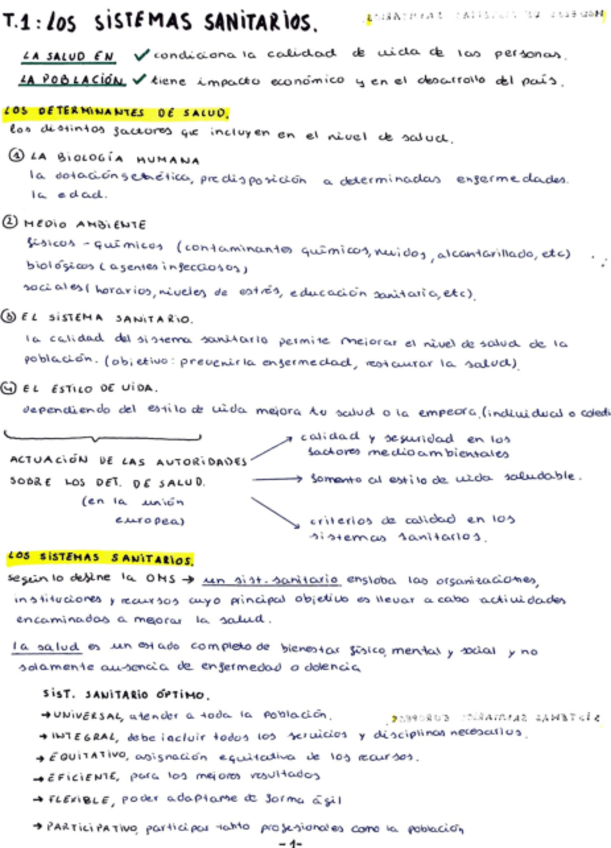 T.1: LOS SISTEMAS SANITARIOS.
LA SALUD EN ✓ condiciona la calidad de vida de las personas.
LA POBLACIÓN ✓ tiene impacto económico y en el desarrollo del país.
LOS DETERMINANTES DE SALUD.
los distintos factores que incluyen en el nivel de salud.
① LA BIOLOGÍA HUMANA
la dotación genética, predisposición a determinadas enfermedades.
la edad.
② MEDIO AMBIENTE
físicos - químicos (contaminantes químicos, ruidos, alcantarillado, etc)
biológicos (agentes infecciosos)
sociales (horarios, niveles de estrés, educación sanitaria, etc).
③ EL SISTEMA SANITARIO.
la calidad del sistema sanitario permite mejorar el nivel de salud de la
población. (objetivo: prevenir la enfermedad, restaurar la salud)
④ EL ESTILO DE VIDA.
dependiendo del estilo de vida mejora tu salud o la empeora (individual o colecti
ACTUACIÓN DE LAS AUTORIDADES
SOBRE LOS DET. DE SALUD.
(en la unión
europea)
calidad y seguridad en los
factores medioambientales
fomento al estilo de vida saludable.
criterios de calidad en los
sistemas sanitarios.
LOS SISTEMAS SANITARIOS.
según lo define la OMS → un sist. sanitario engloba las organizaciones,
instituciones y recursos cuyo principal objetivo es llevar a cabo actividades
encaminadas a mejorar la salud.
la salud es un estado completo de bienestar físico, mental y social y no
solamente ausencia de enfermedad o dolencia
SIST. SANITARIO ÓPTIMO.
→ UNIVERSAL, atender a toda la población.
→ INTEGRAL, debe incluir todos los servicios y disciplinas necesarios.
→ EQUITATIVO, asignación equitativa de los recursos.
→ EFICIENTE, para los mejores resultados
→ FLEXIBLE, poder adaptarse de forma ágil
→ PARTICIPATIVO, participar tanto profesionales como la población
-1-